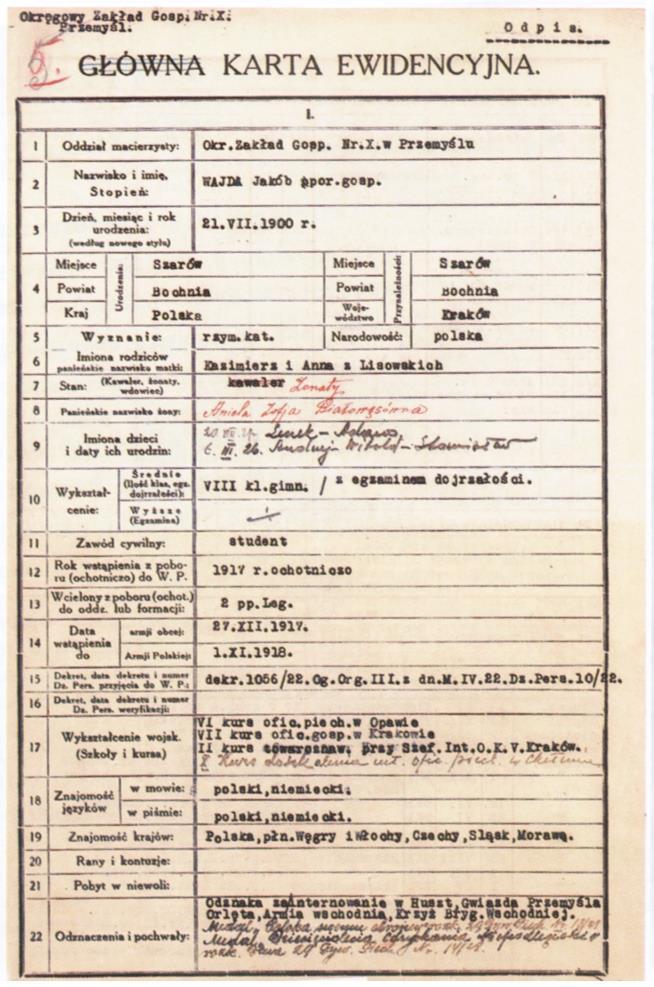 Okręgowy Zakład Gosp. Nr.X.
Przemyśl.
Odpis.
5.
GŁÓWNA KARTA EWIDENCYJNA.
I.
1 Oddział macierzysty: Okr.Zakład Gosp. Nr.X.w Przemyślu
2 Nazwisko i imię, Stopień: WAJDA Jakób ppor.gosp.
3 Dzień, miesiąc i rok urodzenia: (według nowego stylu) 21.VII.1900 r.
4 Urodzenia: Przynależności:
Miejsce Szarów Miejsce Szarów
Powiat Bochnia Powiat Bochnia
Kraj Polska Województwo Kraków
5 Wyznanie: rzym.kat. Narodowość: polska
6 Imiona rodziców panieńskie nazwisko matki: Kazimierz i Anna z Lisowskich
7 Stan: (Kawaler, żonaty, wdowiec) kawaler Żonaty
8 Panieńskie nazwisko żony: Aniela Zofja Białowąsówna
9 Imiona dzieci i daty ich urodzin:
6. III. 26. Witold
10 Wykształcenie: Średnie (Ilość klas, egz. dojrzałości): VIII kl.gimn. / z egzaminem dojrzałości.
Wyższe (Egzamina)
11 Zawód cywilny: student
12 Rok wstąpienia z poboru (ochotniczo) do W. P. 1917 r.ochotniczo
13 Wcielony z poboru (ochot.) do oddz. lub formacji: 2 pp.Leg.
14 Data wstąpienia do armji obcej: 27.XII.1917.
Armji Polskiej: 1.XI.1918.
15 Dekret, data dekretu i numer Dz. Pers. przyjęcia do W. P.: dekr.1056/22.Og.Org.III.z dn.M.IV.22.Dz.Pers.10/22.
16 Dekret, data dekretu i numer Dz. Pers. weryfikacji:
17 Wykształcenie wojsk. (Szkoły i kursa)
VI kurs ofic.piech.w Opawie
VII kurs ofic.gosp.w Krakowie
II kurs towaroznaw. przy Szef.Int.O.K.V.Kraków.
Kurs ofic. piech. w Chełmnie
18 Znajomość języków w mowie: polski,niemiecki.
w piśmie: polski,niemiecki.
19 Znajomość krajów: Polska,płn.Węgry iWłochy,Czechy,Sląsk,Morawę.
20 Rany i kontuzje:
21 Pobyt w niewoli:
22 Odznaczenia i pochwały:
Odznaka zainternowanie w Huszt,Gwiazda Przemyśla
Orlęta,Armia wschodnia,Krzyż Bryg.Wschodniej.
Medal
Medal Dziesięciolecia